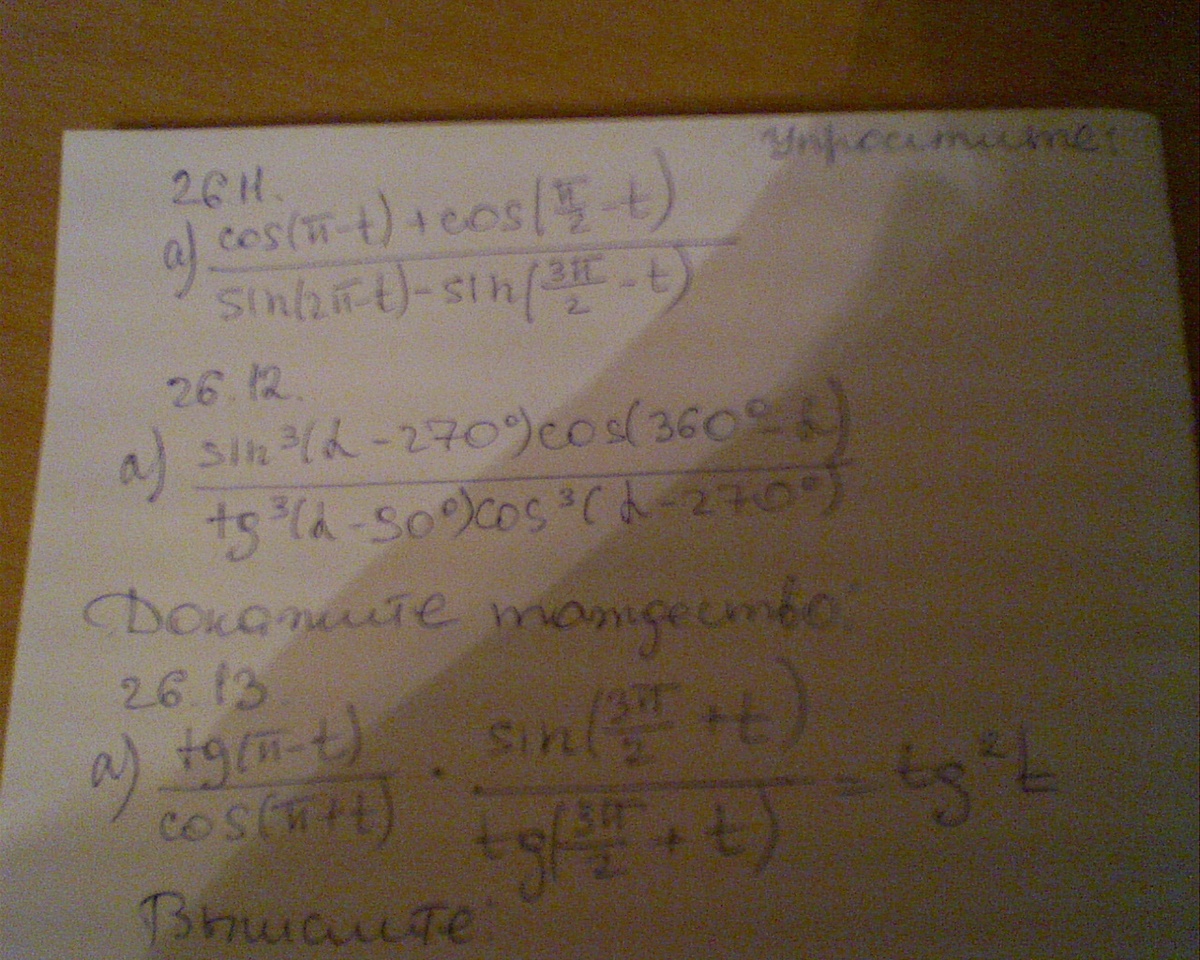 Упростите:
26 11.
а) cos(π-t) + cos(π/2 - t) / sin(2π-t) - sin(3π/2 - t)
26.12.
а) sin³(α - 270°)cos(360° - α) / tg³(α - 90°)cos³(α - 270°)
Докажите тождество:
26.13.
а) tg(π-t) / cos(π+t) · sin(3π/2 + t) / tg(3π/2 + t) = tg²t
Вычислите: